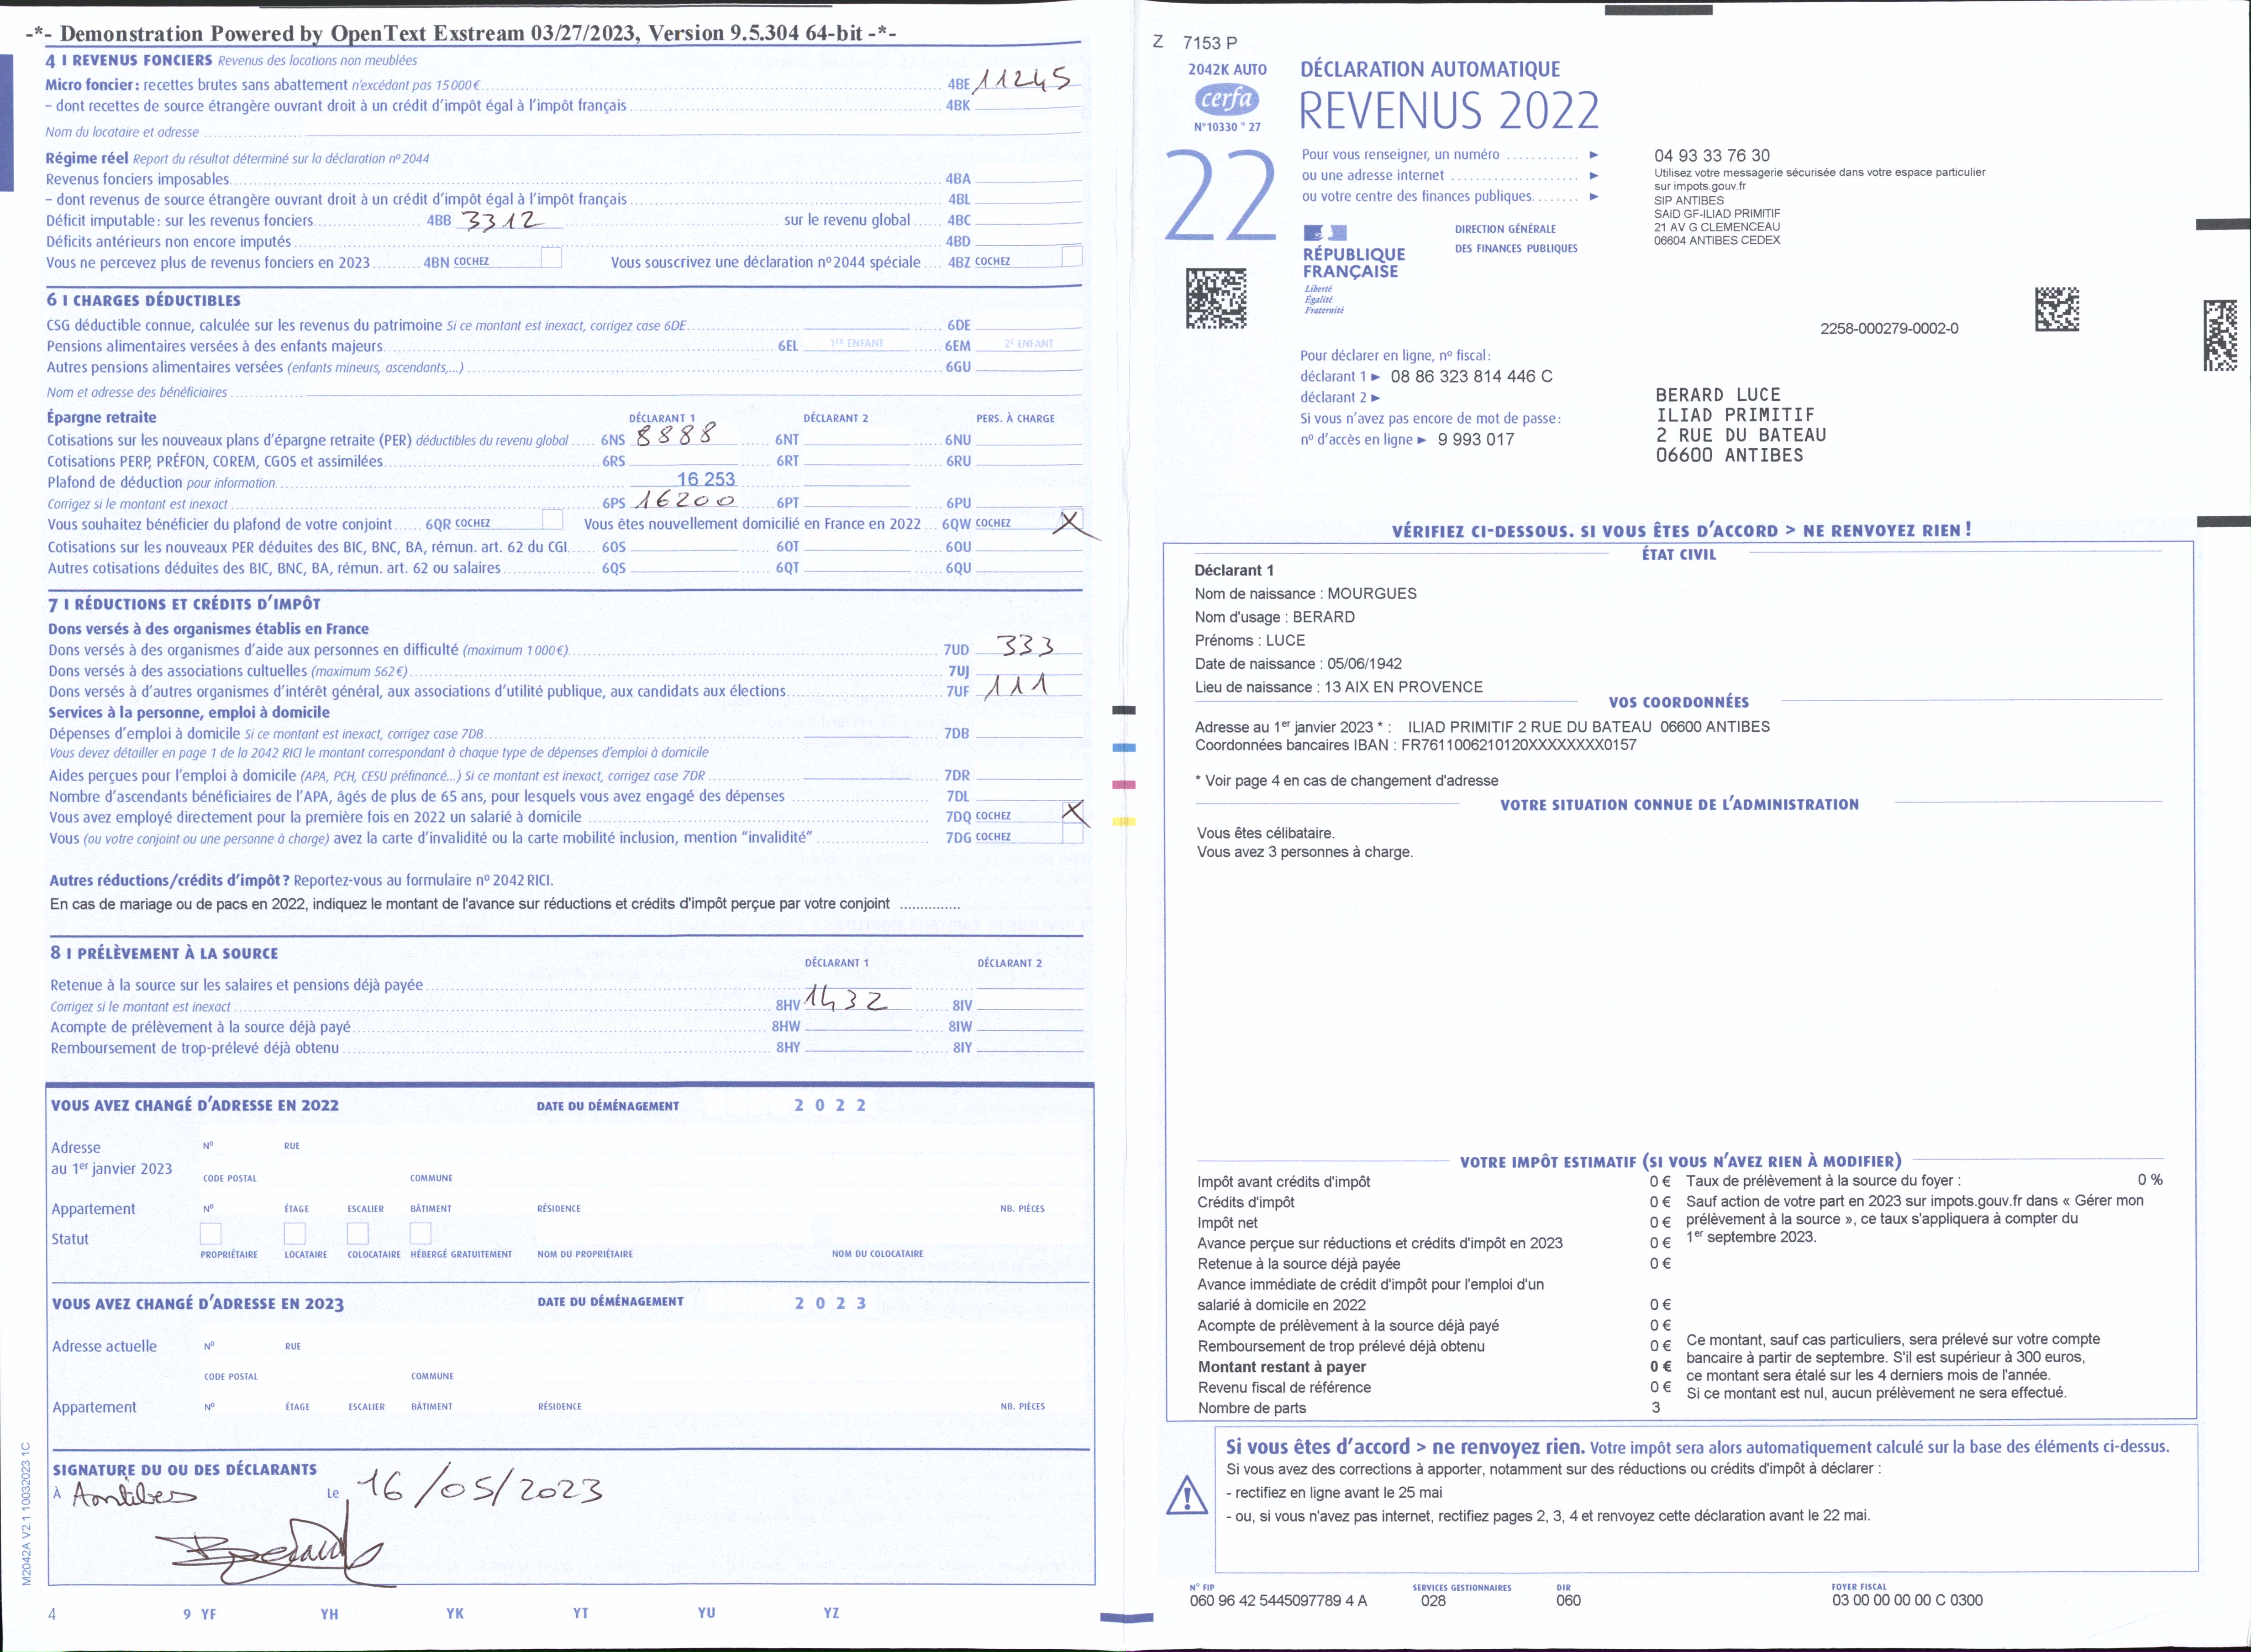 -*- Demonstration Powered by OpenText Exstream 03/27/2023, Version 9.5.304 64-bit -*-
4 I REVENUS FONCIERS Revenus des locations non meublées
Micro foncier : recettes brutes sans abattement n'excédant pas 15 000 € 4BE 11245
– dont recettes de source étrangère ouvrant droit à un crédit d'impôt égal à l'impôt français 4BK
Nom du locataire et adresse
Régime réel Report du résultat déterminé sur la déclaration nº 2044
Revenus fonciers imposables 4BA
– dont revenus de source étrangère ouvrant droit à un crédit d'impôt égal à l'impôt français 4BL
Déficit imputable : sur les revenus fonciers 4BB 3312 sur le revenu global 4BC
Déficits antérieurs non encore imputés 4BD
Vous ne percevez plus de revenus fonciers en 2023 4BN COCHEZ Vous souscrivez une déclaration nº 2044 spéciale 4BZ COCHEZ
6 I CHARGES DÉDUCTIBLES
CSG déductible connue, calculée sur les revenus du patrimoine Si ce montant est inexact, corrigez case 6DE 6DE
Pensions alimentaires versées à des enfants majeurs 6EL 1ER ENFANT 6EM 2E ENFANT
Autres pensions alimentaires versées (enfants mineurs, ascendants,...) 6GU
Nom et adresse des bénéficiaires
Épargne retraite DÉCLARANT 1 DÉCLARANT 2 PERS. À CHARGE
Cotisations sur les nouveaux plans d'épargne retraite (PER) déductibles du revenu global 6NS 8888 6NT 6NU
Cotisations PERP, PRÉFON, COREM, CGOS et assimilées 6RS 6RT 6RU
Plafond de déduction pour information 16 253
Corrigez si le montant est inexact 6PS 16200 6PT 6PU
Vous souhaitez bénéficier du plafond de votre conjoint 6QR COCHEZ Vous êtes nouvellement domicilié en France en 2022 6QW COCHEZ X
Cotisations sur les nouveaux PER déduites des BIC, BNC, BA, rémun. art. 62 du CGI 6OS 6OT 6OU
Autres cotisations déduites des BIC, BNC, BA, rémun. art. 62 ou salaires 6QS 6QT 6QU
7 I RÉDUCTIONS ET CRÉDITS D'IMPÔT
Dons versés à des organismes établis en France
Dons versés à des organismes d'aide aux personnes en difficulté (maximum 1 000 €) 7UD 333
Dons versés à des associations cultuelles (maximum 562 €) 7UJ
Dons versés à d'autres organismes d'intérêt général, aux associations d'utilité publique, aux candidats aux élections 7UF 111
Services à la personne, emploi à domicile
Dépenses d'emploi à domicile Si ce montant est inexact, corrigez case 7DB 7DB
Vous devez détailler en page 1 de la 2042 RICI le montant correspondant à chaque type de dépenses d'emploi à domicile
Aides perçues pour l'emploi à domicile (APA, PCH, CESU préfinancé...) Si ce montant est inexact, corrigez case 7DR 7DR
Nombre d'ascendants bénéficiaires de l'APA, âgés de plus de 65 ans, pour lesquels vous avez engagé des dépenses 7DL
Vous avez employé directement pour la première fois en 2022 un salarié à domicile 7DQ COCHEZ X
Vous (ou votre conjoint ou une personne à charge) avez la carte d'invalidité ou la carte mobilité inclusion, mention "invalidité" 7DG COCHEZ
Autres réductions/crédits d'impôt ? Reportez-vous au formulaire nº 2042 RICI.
En cas de mariage ou de pacs en 2022, indiquez le montant de l'avance sur réductions et crédits d'impôt perçue par votre conjoint ..............
8 I PRÉLÈVEMENT À LA SOURCE
DÉCLARANT 1 DÉCLARANT 2
Retenue à la source sur les salaires et pensions déjà payée
Corrigez si le montant est inexact 8HV 1432 8IV
Acompte de prélèvement à la source déjà payé 8HW 8IW
Remboursement de trop-prélevé déjà obtenu 8HY 8IY
VOUS AVEZ CHANGÉ D'ADRESSE EN 2022 DATE DU DÉMÉNAGEMENT 2 0 2 2
Adresse Nº RUE
au 1er janvier 2023
CODE POSTAL COMMUNE
Appartement Nº ÉTAGE ESCALIER BÂTIMENT RÉSIDENCE NB. PIÈCES
Statut
PROPRIÉTAIRE LOCATAIRE COLOCATAIRE HÉBERGÉ GRATUITEMENT NOM DU PROPRIÉTAIRE NOM DU COLOCATAIRE
VOUS AVEZ CHANGÉ D'ADRESSE EN 2023 DATE DU DÉMÉNAGEMENT 2 0 2 3
Adresse actuelle Nº RUE
CODE POSTAL COMMUNE
Appartement Nº ÉTAGE ESCALIER BÂTIMENT RÉSIDENCE NB. PIÈCES
SIGNATURE DU OU DES DÉCLARANTS
À Antibes Le 16/05/2023
M2042A V2.1 10032023 1C
4 9 YF YH YK YT YU YZ
Z 7153 P
2042K AUTO
cerfa
N°10330 * 27
DÉCLARATION AUTOMATIQUE
REVENUS 2022
22
Pour vous renseigner, un numéro ............ ► 04 93 33 76 30
ou une adresse internet ► Utilisez votre messagerie sécurisée dans votre espace particulier
sur impots.gouv.fr
ou votre centre des finances publiques ► SIP ANTIBES
SAID GF-ILIAD PRIMITIF
21 AV G CLEMENCEAU
06604 ANTIBES CEDEX
RÉPUBLIQUE
FRANÇAISE
Liberté
Égalité
Fraternité
DIRECTION GÉNÉRALE
DES FINANCES PUBLIQUES
2258-000279-0002-0
Pour déclarer en ligne, nº fiscal :
déclarant 1 ► 08 86 323 814 446 C
déclarant 2 ►
Si vous n'avez pas encore de mot de passe :
nº d'accès en ligne ► 9 993 017
BERARD LUCE
ILIAD PRIMITIF
2 RUE DU BATEAU
06600 ANTIBES
VÉRIFIEZ CI-DESSOUS. SI VOUS ÊTES D'ACCORD > NE RENVOYEZ RIEN !
ÉTAT CIVIL
Déclarant 1
Nom de naissance : MOURGUES
Nom d'usage : BERARD
Prénoms : LUCE
Date de naissance : 05/06/1942
Lieu de naissance : 13 AIX EN PROVENCE
VOS COORDONNÉES
Adresse au 1er janvier 2023 * : ILIAD PRIMITIF 2 RUE DU BATEAU 06600 ANTIBES
Coordonnées bancaires IBAN : FR7611006210120XXXXXXXX0157
* Voir page 4 en cas de changement d'adresse
VOTRE SITUATION CONNUE DE L'ADMINISTRATION
Vous êtes célibataire.
Vous avez 3 personnes à charge.
VOTRE IMPÔT ESTIMATIF (SI VOUS N'AVEZ RIEN À MODIFIER)
Impôt avant crédits d'impôt 0 €
Crédits d'impôt 0 €
Impôt net 0 €
Avance perçue sur réductions et crédits d'impôt en 2023 0 €
Retenue à la source déjà payée 0 €
Avance immédiate de crédit d'impôt pour l'emploi d'un
salarié à domicile en 2022 0 €
Acompte de prélèvement à la source déjà payé 0 €
Remboursement de trop prélevé déjà obtenu 0 €
Montant restant à payer 0 €
Revenu fiscal de référence 0 €
Nombre de parts 3
Taux de prélèvement à la source du foyer : 0 %
Sauf action de votre part en 2023 sur impots.gouv.fr dans « Gérer mon
prélèvement à la source », ce taux s'appliquera à compter du
1er septembre 2023.
Ce montant, sauf cas particuliers, sera prélevé sur votre compte
bancaire à partir de septembre. S'il est supérieur à 300 euros,
ce montant sera étalé sur les 4 derniers mois de l'année.
Si ce montant est nul, aucun prélèvement ne sera effectué.
Si vous êtes d'accord > ne renvoyez rien. Votre impôt sera alors automatiquement calculé sur la base des éléments ci-dessus.
Si vous avez des corrections à apporter, notamment sur des réductions ou crédits d'impôt à déclarer :
- rectifiez en ligne avant le 25 mai
- ou, si vous n'avez pas internet, rectifiez pages 2, 3, 4 et renvoyez cette déclaration avant le 22 mai.
N° FIP SERVICES GESTIONNAIRES DIR FOYER FISCAL
060 96 42 5445097789 4 A 028 060 03 00 00 00 00 C 0300